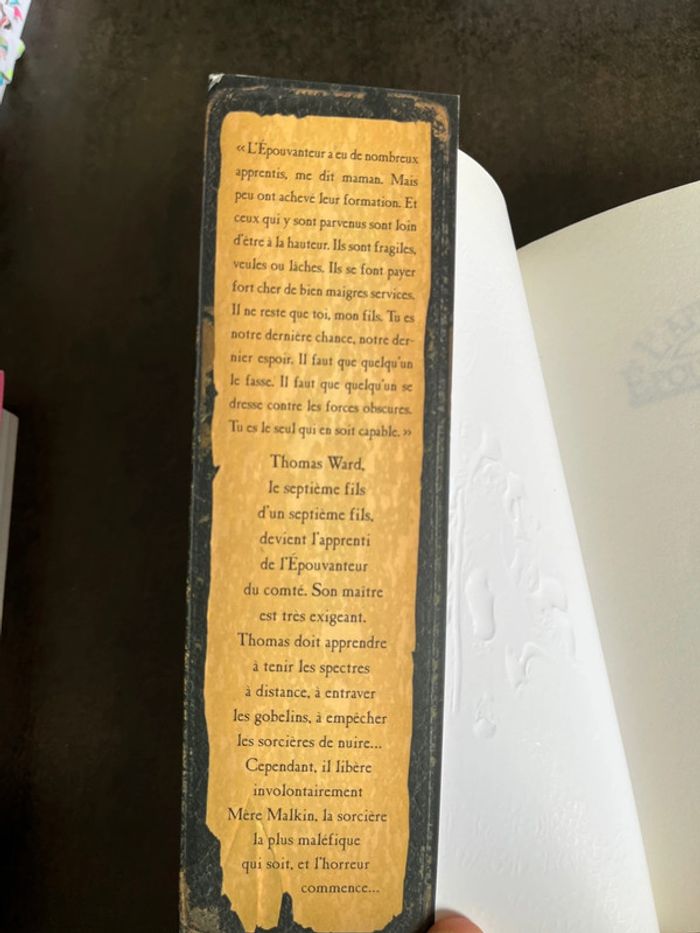 « L'Épouvanteur a eu de nombreux
apprentis, me dit maman. Mais
peu ont achevé leur formation. Et
ceux qui y sont parvenus sont loin
d'être à la hauteur. Ils sont fragiles,
veules ou lâches. Ils se font payer
fort cher de bien maigres services.
Il ne reste que toi, mon fils. Tu es
notre dernière chance, notre der-
nier espoir. Il faut que quelqu'un
le fasse. Il faut que quelqu'un se
dresse contre les forces obscures.
Tu es le seul qui en soit capable. »
Thomas Ward,
le septième fils
d'un septième fils,
devient l'apprenti
de l'Épouvanteur
du comté. Son maître
est très exigeant.
Thomas doit apprendre
à tenir les spectres
à distance, à entraver
les gobelins, à empêcher
les sorcières de nuire...
Cependant, il libère
involontairement
Mère Malkin, la sorcière
la plus maléfique
qui soit, et l'horreur
commence...